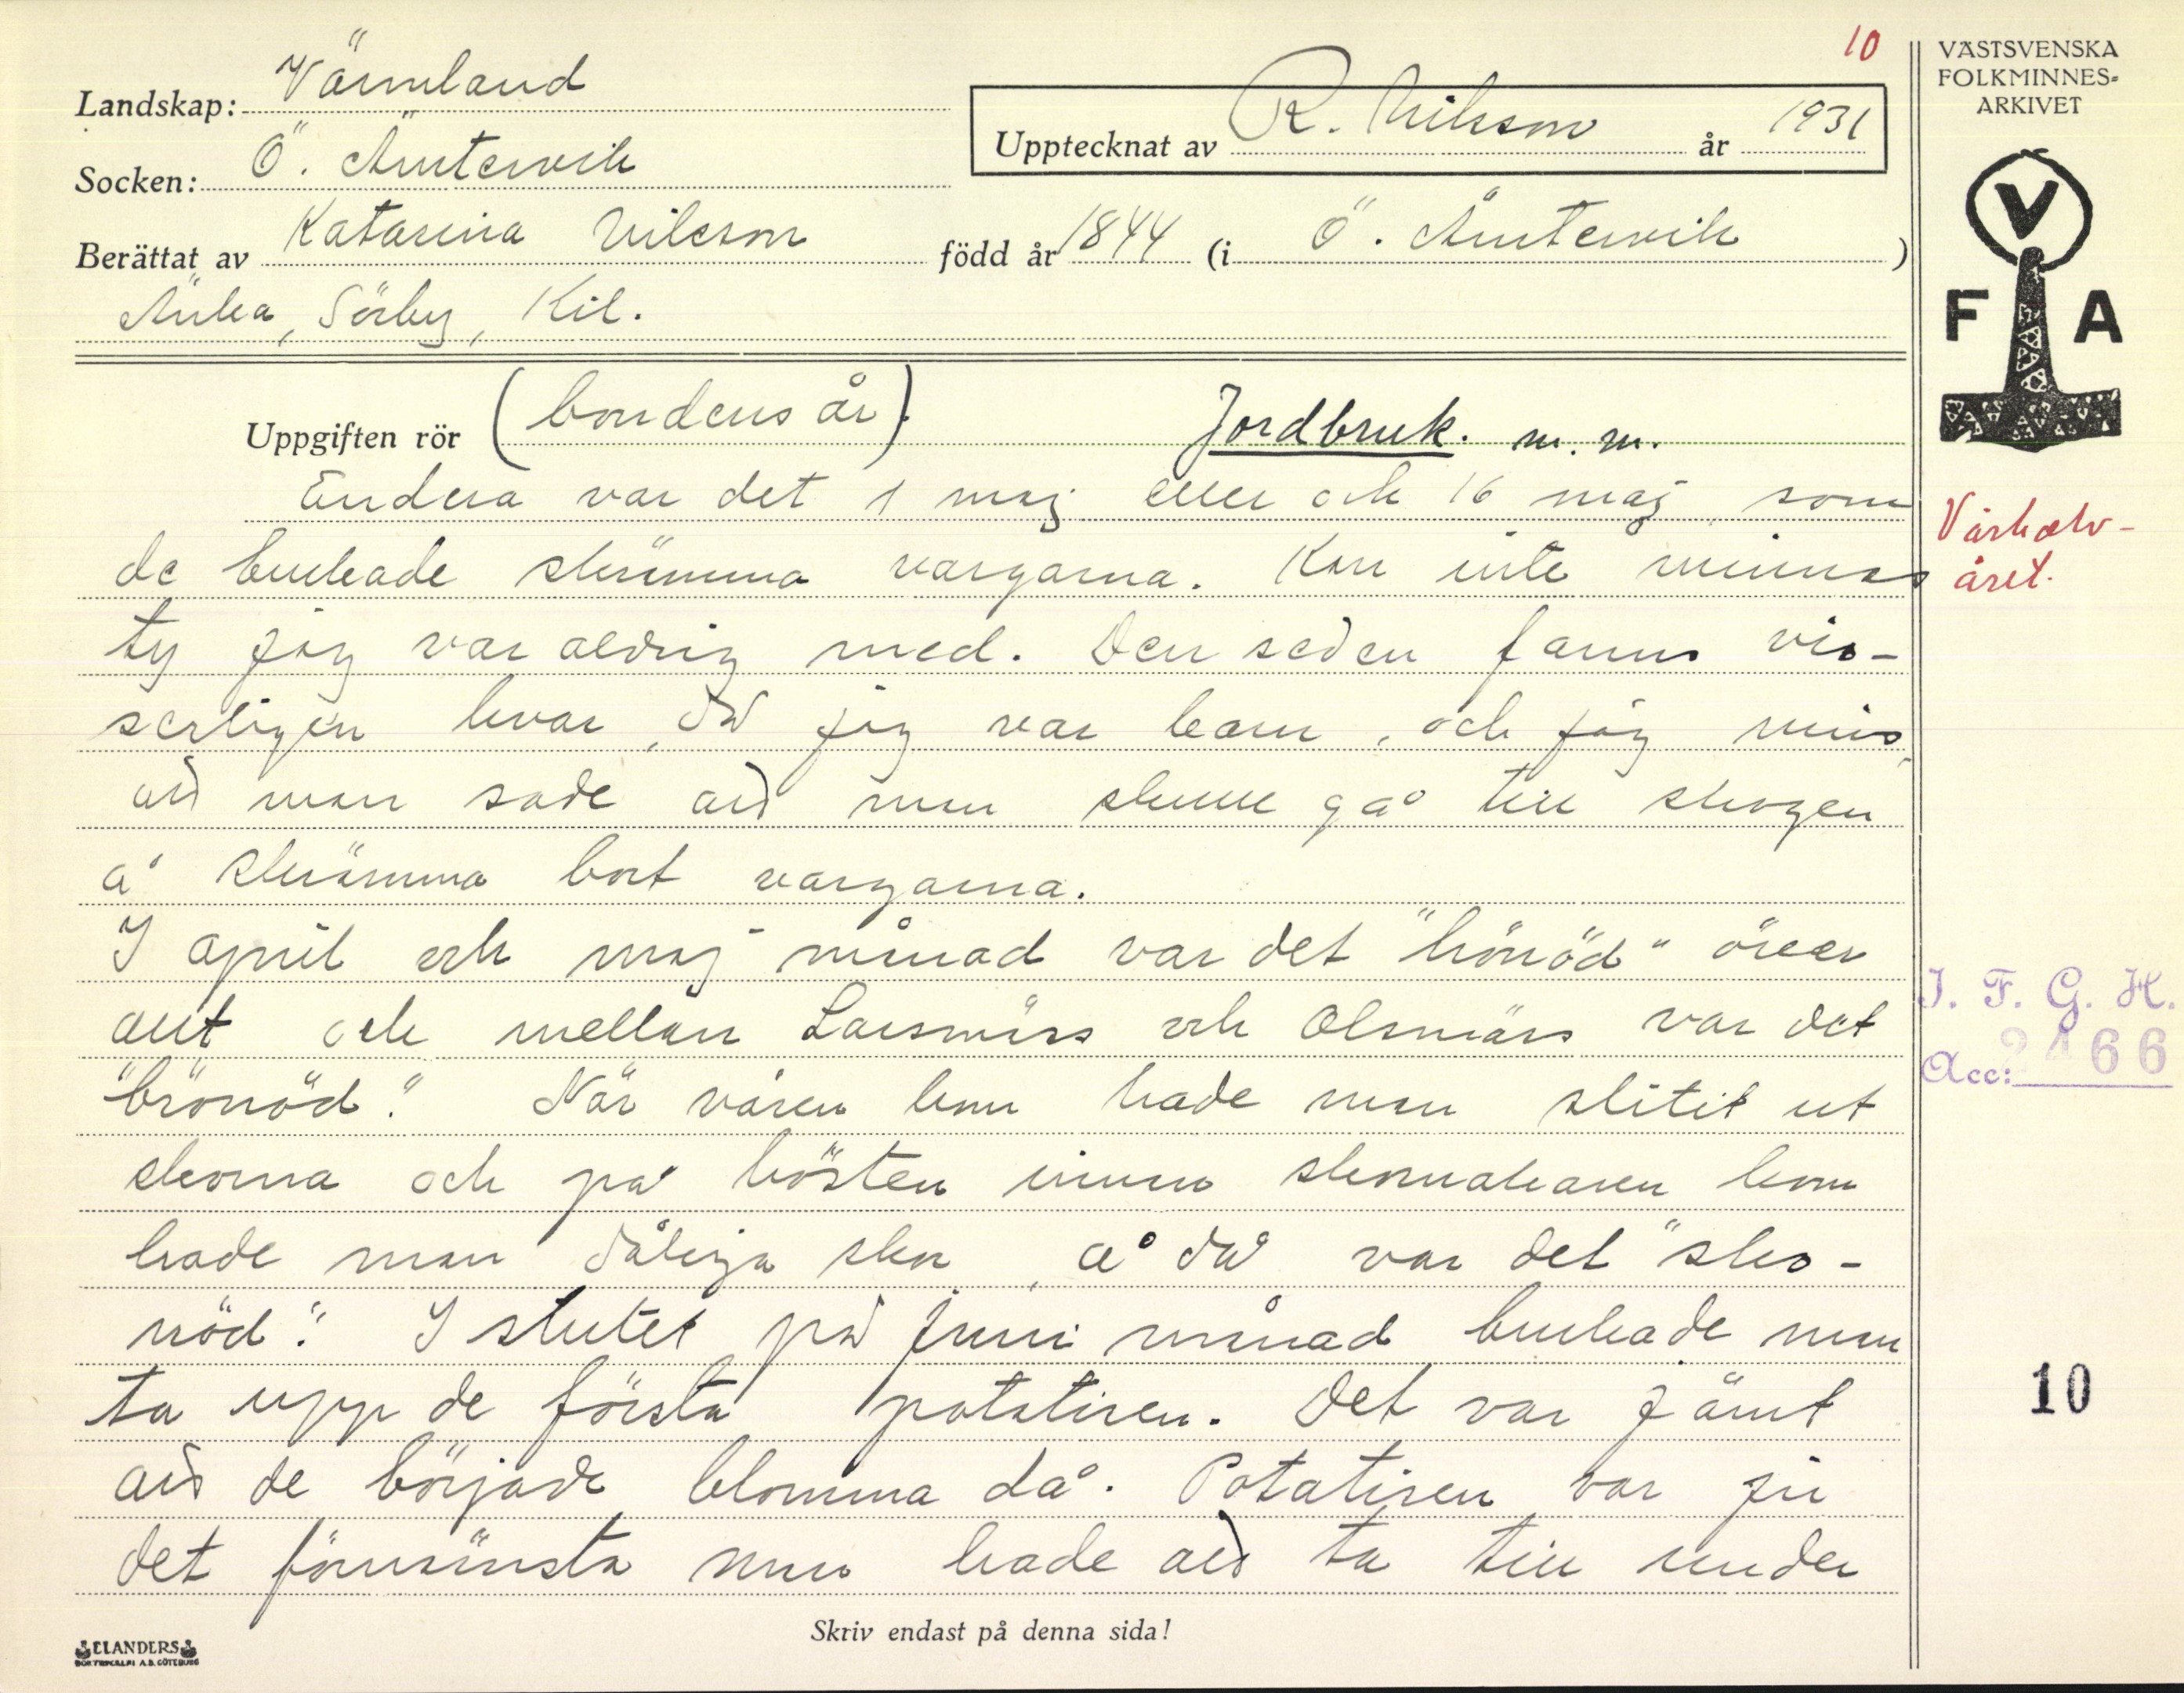 10
Landskap: Värmland
Socken: Ö. Ämtervik
Upptecknat av R. Nilsson år 1931
Berättat av Katarina Nilsson född år 1844 (i Ö. Ämtervik)
Änka, Sörby, Kil.
VÄSTSVENSKA
FOLKMINNES-
ARKIVET
V
F A
Uppgiften rör (bondens år). Jordbruk. m. m.
Endera var det 1 maj eller ock 16 maj, som
de brukade skrämma vargarna. Kan inte minnas
ty jag var aldrig med. Den seden fanns vis-
serligen kvar, då jag var barn, och jag mins,
att man sade att man skulle gå till skogen
å skrämma bort vargarna.
I april och maj månad var det "hönöd" över
allt och mellan Larsmäss och Olsmäss var det
"brönöd". När våren kom hade man slitit ut
skorna och på hösten innan skomakaren kom
hade man dåliga skor, å då var det "sko-
nöd". I slutet på juni månad brukade man
ta upp de första potatisen. Det var jämt
att de började blomma då. Potatisen var ju
det förnämsta man hade att ta till under
Vårhalv-
året.
I. F. G. H.
Acc: 2466
10
Skriv endast på denna sida!
ELANDERS
BOKTRYCKERI A.B. GÖTEBORG